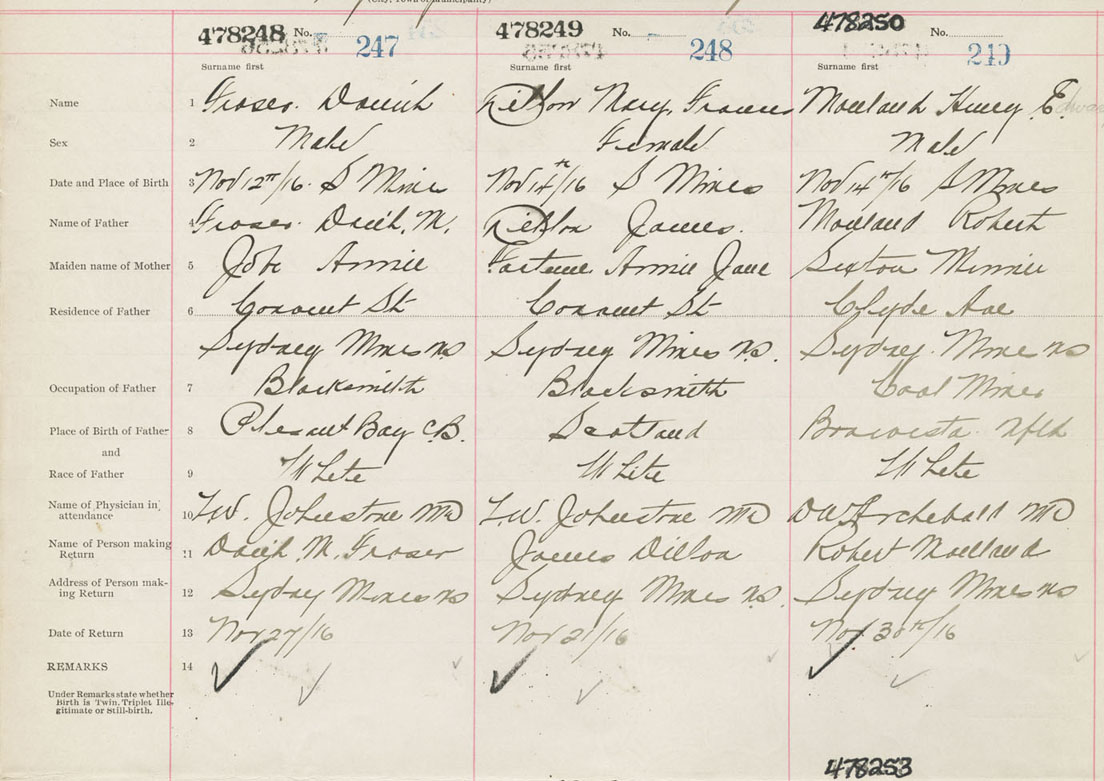 (City, Town or Municipality)
478248 No. 247 478249 No. 248 478250 No. 249
Surname first Surname first Surname first
Name 1 Fraser. Daniel Dillon Mary, Frances Morland Henry E.
Sex 2 Male Female Male
Date and Place of Birth 3 Nov 12th/16. S Mines Nov 14th/16 S Mines Nov 14th/16 S Mines
Name of Father 4 Fraser. Daniel. M. Dillon James. Morland Robert
Maiden name of Mother 5 Jobe Annie Fortune Annie Jane Sexton Minnie
Residence of Father 6 Convent St Convent St Clyde Ave
Sydney Mines NS Sydney Mines NS. Sydney Mines NS
Occupation of Father 7 Blacksmith Blacksmith Coal Miner
Place of Birth of Father 8 Plesant Bay C.B. Scotland Nfld
and
Race of Father 9 White White White
Name of Physician in 10 L.W. Johnstone MD L.W. Johnstone MD Archebald MD
attendance
Name of Person making 11 Daniel M. Fraser James Dillon Robert Morland
Return
Address of Person mak- 12 Sydney Mines NS Sydney Mines NS. Sydney Mines NS
ing Return
Date of Return 13 Nov 27/16 Nov 21/16 Nov 30th/16
REMARKS 14
Under Remarks state whether
Birth is Twin, Triplet Ille-
gitimate or Still-birth.
478253